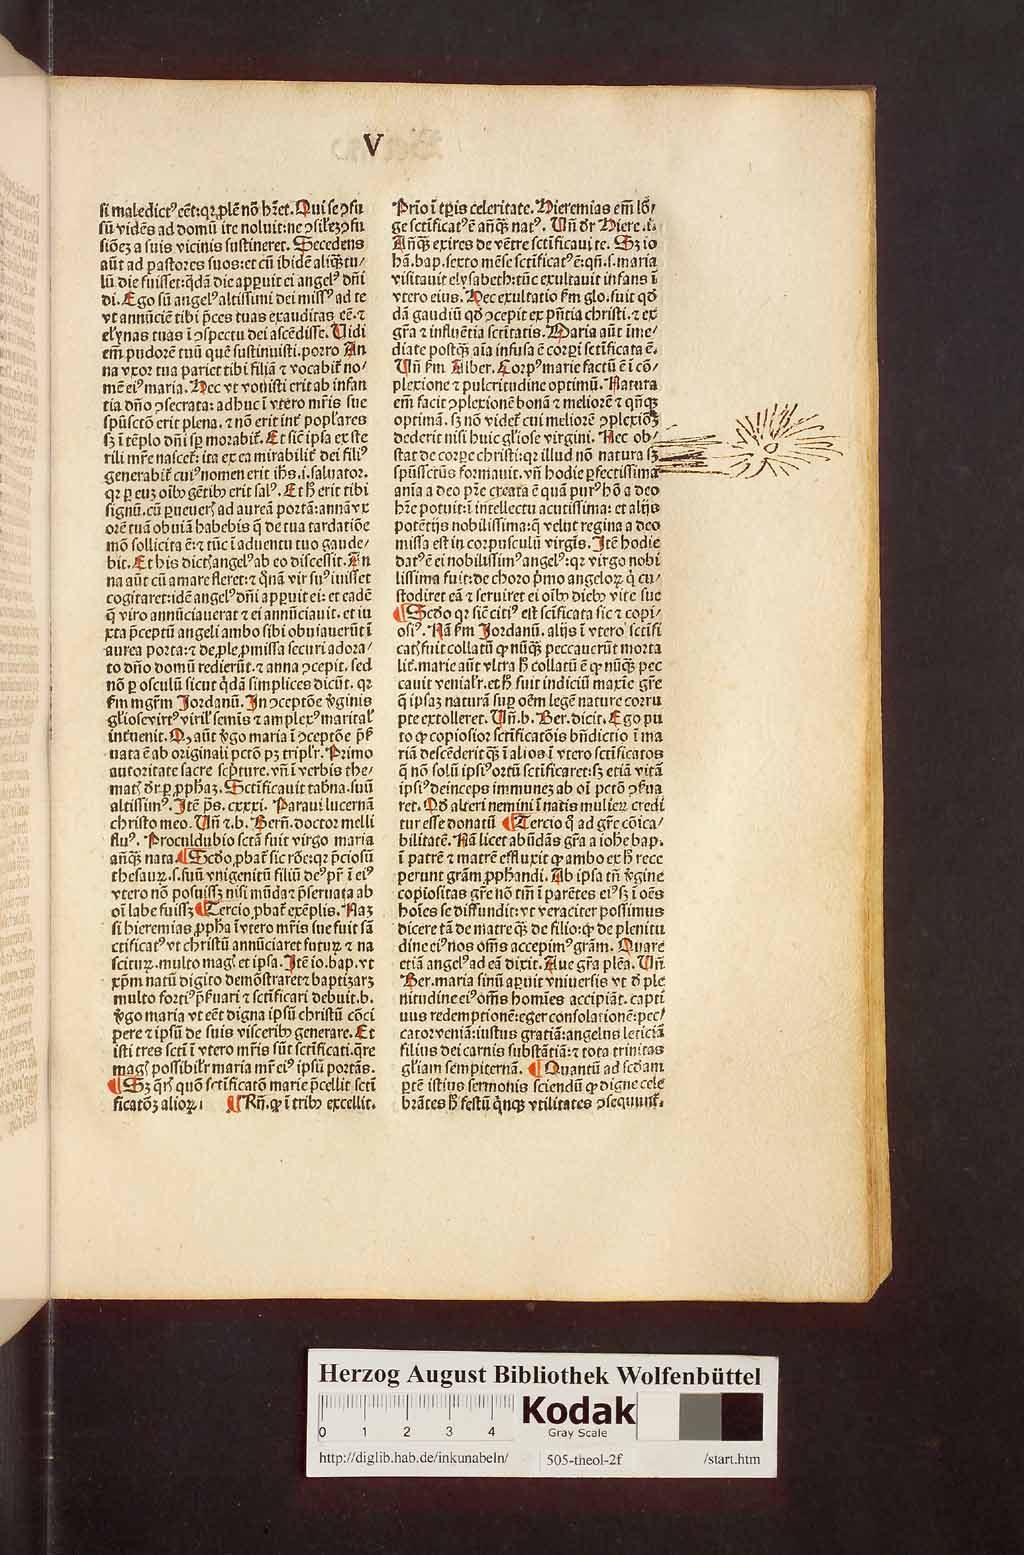 V
si maledictꝰ eēt: qꝛ ꝓlē nō hꝛet. Qui se ↄfu
sū vidēs ad domū ire noluit: ne ↄsilēꝫ ↄfu
siōeꝫ a suis vicinis sustineret. Secedens
aūt ad pastores suos: et cū ibidē aliqꝫ tu/
lū die fuisset: qdā die apparuit ei angelꝰ dn̄i
di. Ego sū angelꝰ altissimi dei missꝰ ad te
vt annūciē tibi p̄ces tuas exauditas eē. ⁊
elȳnas tuas ī ↄspectu dei ascēdisse. Vidi
em̄ pudorē tuū quē sustinuisti. porro An
na vxor tua pariet tibi filiā ⁊ vocabit̄ no/
mē eiꝰ maria. Hec vt vouisti erit ab infan
tia dn̄o ↄsecrata: adhuc ī vtero mr̄is sue
spūsctō erit plena. ⁊ nō erit int̄ popl̄ares
sꝫ ī tēplo dn̄i sp̄ morabit̄. Et siē ipsa ex ste
rili mr̄e nascet̄: ita ex ea mirabilit̄ dei filiꝰ
generabit̄ cuiꝰ nomen erit ih̄s .i. saluator.
qꝛ ꝑ eūꝫ oībꝫ gētibꝫ erit salꝰ. Et h̄ erit tibi
signū. cū ꝑueneris ad aureā portā: annā vx
orē tuā obuiā habebis q̄ de tua tardatiōe
mō sollicita ē: ⁊ tūc ī aduentu tuo gaude/
bit. Et his dictis angelꝰ ab eo discessit. An
na aūt cū amare fleret: ⁊ q̄nā vir suꝰ iuisset
cogitaret: idē angelꝰ dn̄i apparuit ei: et eadē
q̄ viro annūciauerat ⁊ ei annūciauit. et iu
xta p̄ceptū angeli ambo sibi obuiauerūt ī
aurea porta: ⁊ de ꝓle ꝓmissa securi adora/
to dn̄o domū redierūt. ⁊ anna ↄcepit. sed
nō ꝑ osculū sicut qdā simplices dicūt. qꝛ
fm mgr̄m Jordanū. In ↄceptōe v̄ginis
gl̄iose virtꝰ viril̄ semīs ⁊ amplexꝰ maritalꝭ
int̄uenit. Qꝫ aūt v̄go maria ī ↄceptōe p̄ß
uata ē ab originali pctō pꝫ tripl̄r. Primo
autoritate sacre scpture. vn̄ ī verbis the/
matꝭ dr̄ ꝑ ꝓpham. Sctificauit tabn̄a. suū
altissimꝰ. Itē ps̄. cxxxi. Paraui lucernā
christo meo. Vn̄ ⁊ .b. Bern̄. doctor melli
fluꝰ. Proculdubio sctā fuit virgo maria
an̄qꝫ nata. ¶ Scdo ꝓbat̄ sic rōe: qꝛ p̄ciosū
thesauꝝ .s. suū vnigenitū filiū deꝰ pr̄ ī eiꝰ
vtero nō posuissꝫ nisi mūda ⁊ p̄seruata ab
oī labe fuissꝫ ¶ Tercio ꝓbat̄ exēplis. Naꝫ
si hieremias ꝓpha ī vtero mr̄is sue fuit sā
ctificatꝰ vt christū annūciaret futuꝝ ⁊ na
scituꝝ. multo magꝭ et ipsa. Itē io. bap. vt
xp̄m natū digito demōstraret ⁊ baptizarꝫ
multo fortiꝰ p̄ßuari ⁊ sctificari debuit .b.
v̄go maria vt eēt digna ipsū christū cōci
pere ⁊ ipsū de suis visceribꝫ generare. Et
isti tres scti ī vtero mr̄is sūt sctificati. qr̄e
magꝭ possibil̄r maria mr̄ eiꝰ ipsū portās.
¶ Sꝫ qr̄it̄ quō sctificatō marie p̄cellit scti
ficatōꝫ alioꝝ. ¶ Rn̄. ꝙ ī tribꝫ excellit.
Prīo ī tꝑis celeritate. Hieremias em̄ lō/
ge sctificatꝰ ē an̄qꝫ natꝰ. Vn̄ dr̄ Hiere. i.
An̄qꝫ exires de vētre sctificaui te. Sꝫ io
hā. bap. sexto mēse sctificatꝰ ē: qn̄ .s. maria
visitauit elysabeth: tūc exultauit infans ī
vtero eius. Hec exultatio fm glo. fuit qd̄
dā gaudiū qd̄ ↄcepit ex p̄ntia christi. ⁊ ex
gr̄a ⁊ influētia sctitatis. Maria aūt īme/
diate postqꝫ aīa infusa ē corpori sctificata ē.
Vn̄ fm Alber. Corpꝰ marie factū ē ī cō/
plexione ⁊ pulcritudine optimū. Natura
em̄ facit ↄplexionē bonā ⁊ meliorē ⁊ qn̄qꝫ
optimā. sꝫ nō videt̄ cui meliorē ↄplexiōꝫ
dederit nisi huic gl̄iose virgini. Nec ob/
stat de corpore christi: qꝛ illud nō natura sꝫ
spūssctūs formauit. vn̄ hodie ꝑfectissima
anīa a deo pr̄e creata ē quā purꝰ hō a deo
hr̄e potuit: ī intellectu acutissima: et alijs
potētijs nobilissima: q̄ velut regina a deo
missa est in corpusculū virgīs. Itē hodie
datꝰ ē ei nobilissimꝰ angelꝰ: qꝛ virgo nobi
lissima fuit: de choro p̄mo angeloꝝ q̄ cu/
stodiret eā ⁊ seruiret ei oībꝫ diebꝫ vite sue
¶ Scdo qꝛ siē citiꝰ est scīficata sic ⁊ copi/
osiꝰ. Nā fm Jordanū. alijs ī vtero sctīfi
catꝭ fuit collatū ꝙ nūqꝫ peccauerūt morta
lit̄. marie aūt vltra h̄ collatū ē ꝙ nūqꝫ pec
cauit venial̄r. et h̄ fuit indiciū maxīe gr̄e
q̄ ipsaꝫ naturā suꝑ oēm legē nature corru
pte extolleret. Vn̄ .b. Ber. dicit. Ego pu
to ꝙ copiosior sctificatōis bn̄dictio ī ma
riā descēderit qꝫ ī alios ī vtero sctificatos
q̄ nō solū ipsiꝰ ortū sctificaret: sꝫ etiā vitā
ipsiꝰ deinceps immuneꝫ ab oī pctō ↄßua
ret. Qd̄ alteri nemini ī natis mulieꝝ credi
tur esse donatū ¶ Tercio q̄ ad gr̄e cōica/
bilitatē. Nā licet abūdās gr̄a a iohe bap.
ī patrē ⁊ matrē effluxit ꝙ ambo ex h̄ rece
perunt grām ꝓphandi. Ab ipsa tn̄ v̄gine
copiositas gr̄e nō tm̄ ī parētes eiꝰ sꝫ ī oēs
hoīes se diffundit: vt veraciter possimus
dicere tā de matre qꝫ de filio: ꝙ de plenitu
dine eiꝰ nos oms̄ accepimꝰ grām. Quare
etiā angelꝰ ad eā dixit. Aue gr̄a plēa. Vn̄
Ber. maria sinū aperuit vniuersis vt d̄ ple
nitudine eiꝰ oms̄ homies accipiāt. capti
uus redemptionē: eger consolationē: pec/
cator veniā: iustus gratiā: angelus leticiā
filius dei carnis substātiā: ⁊ tota trinitas
gl̄iam sempiternā. ¶ Quantū ad scdam
ptē istius sermonis sciendū ꝙ digne cele
brātes h̄ festū q̄nqꝫ vtilitates ↄsequunt̄.
Herzog August Bibliothek Wolfenbüttel
0 1 2 3 4
Kodak
Gray Scale
http://diglib.hab.de/inkunabeln/ 505-theol-2f /start.htm